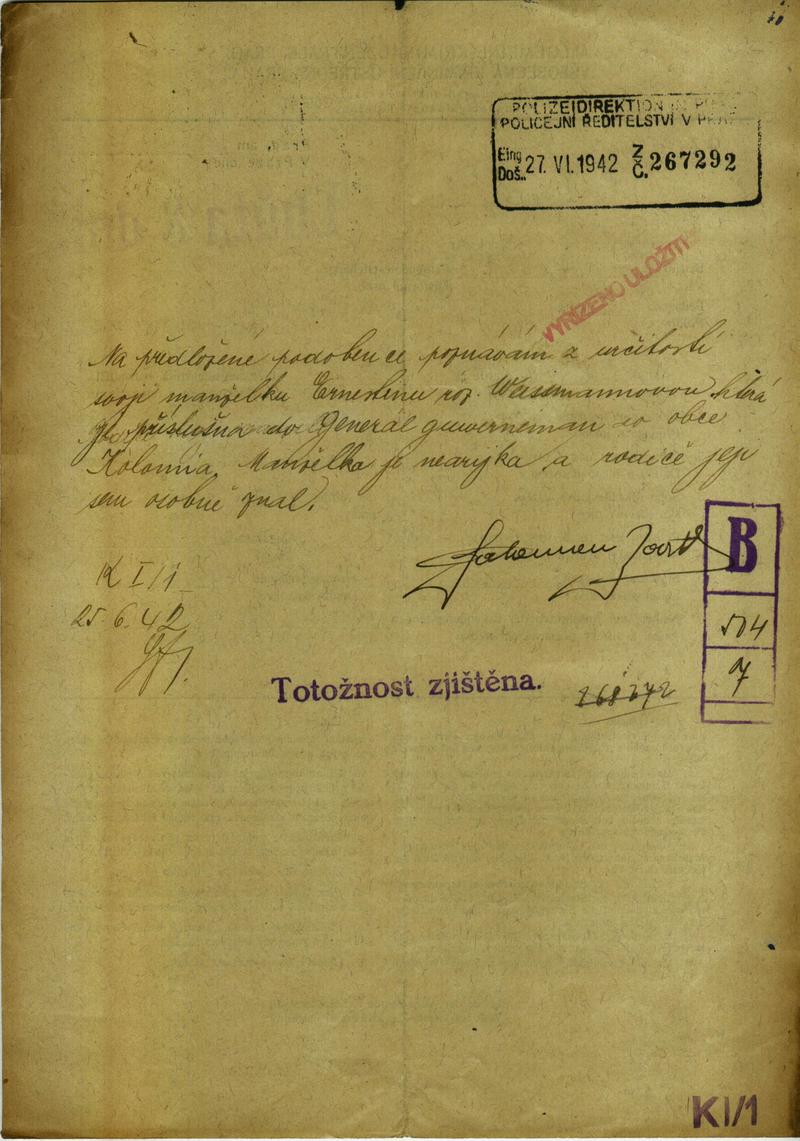 POLIZEIDIREKTION IN PRAG
POLICEJNÍ ŘEDITELSTVÍ V PRAZE
Eing. Doš. 27. VI. 1942 Z. Č. 267292
VYŘÍZENO ULOŽITI
Na předložené podobence poznávám z určitostí
svoji manželku Ernestinu roz. Weissmannovou která
je příslušná do Generál guverneman do obce
Kolomia. Manželka je nearijka a rodiče její
sem osobně znal.
B
504
7
K I/1
25. 6. 42
Totožnost zjištěna.
268272
K I/1